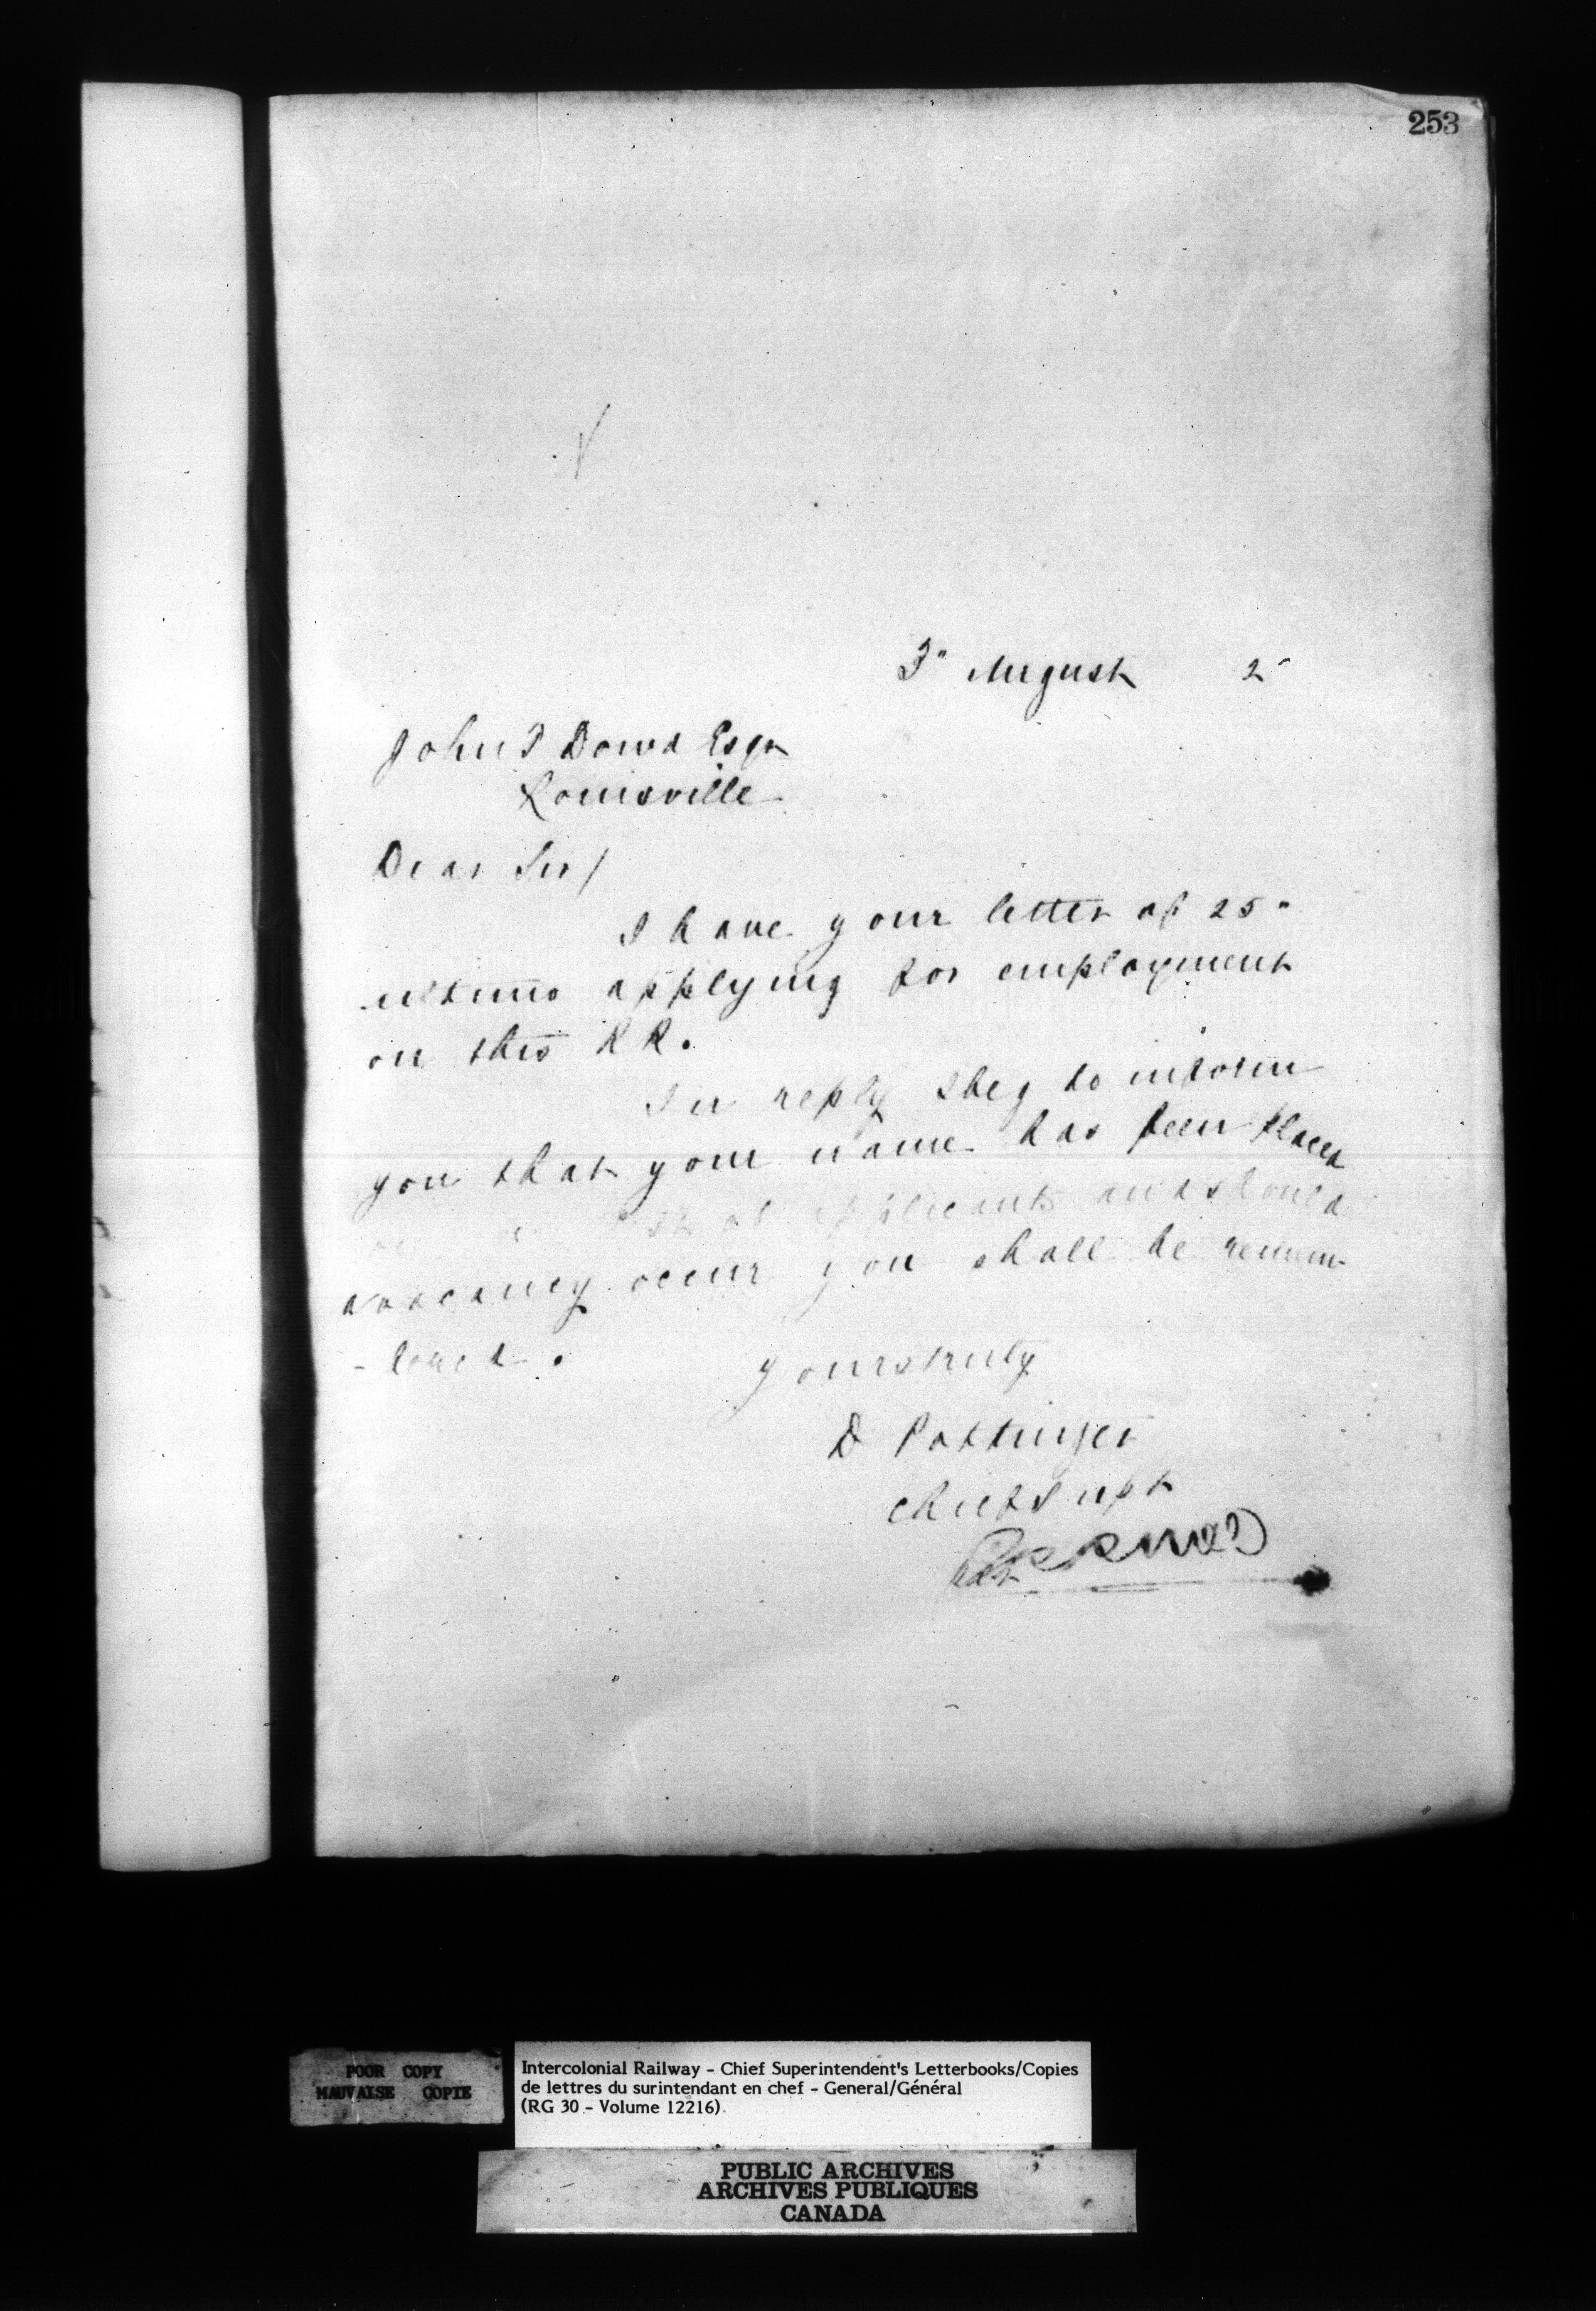 253
3" August 2
John J Dowd Esqr
Louisville
Dear Sir/
I have your letter of 25"
ultimo applying for employment
on this RR.
In reply I beg to inform
you that your name has been placed
on list of applicants and should
a vacancy occur you shall be remem-
-bered.
Yours truly
D Pottinger
Chief Supt
POOR COPY
MAUVAISE COPIE
Intercolonial Railway - Chief Superintendent's Letterbooks/Copies
de lettres du surintendant en chef - General/Général
(RG 30 - Volume 12216)
PUBLIC ARCHIVES
ARCHIVES PUBLIQUES
CANADA